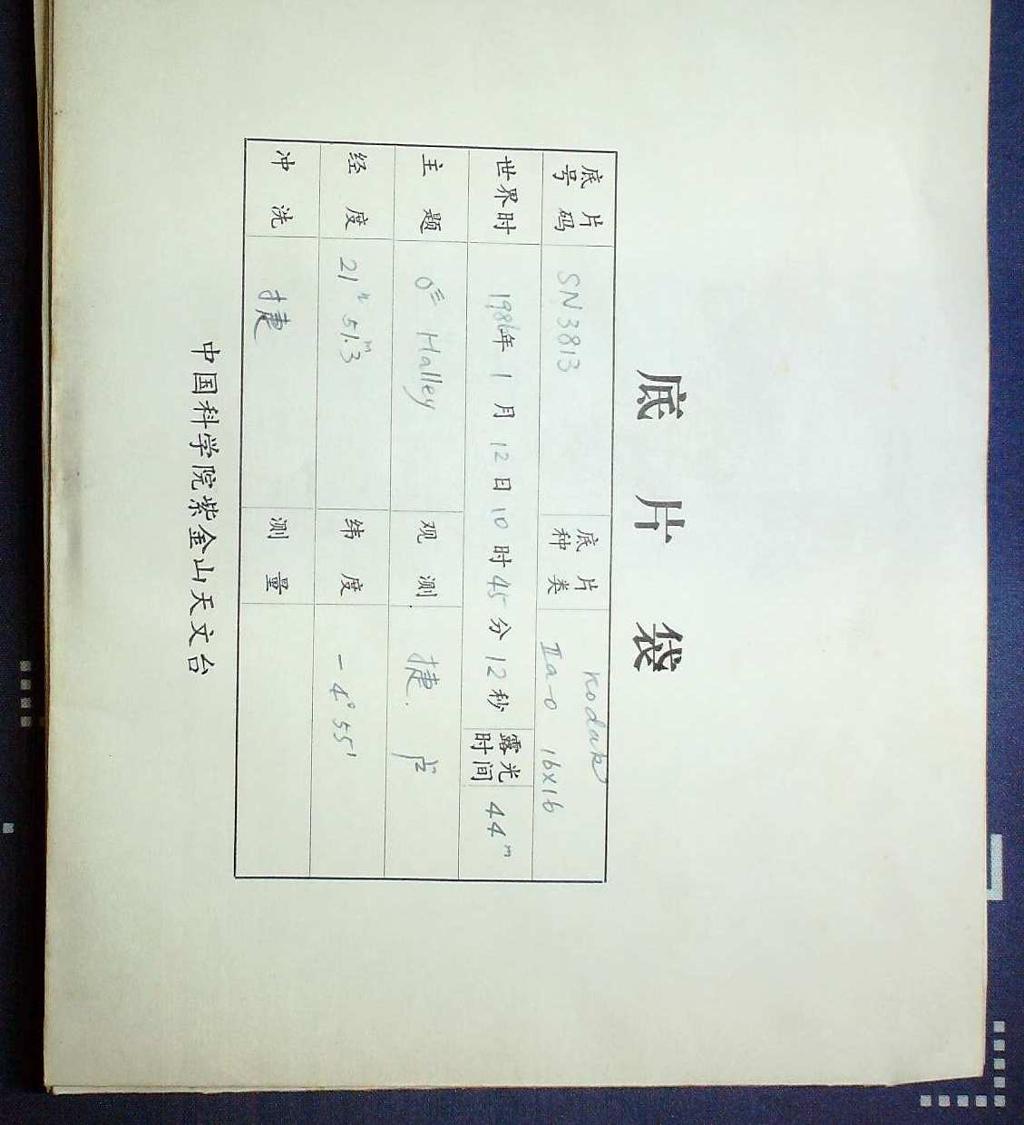 底片袋
底片号码 SN3813 底片种类 Kodak IIa-O 16x16
世界时 1986年1月12日10时45分12秒 露光时间 44m
主题 Halley 观测 捷. 卢
经度 21h 51m.3 纬度 -4°55'
冲洗 捷 测量
中国科学院紫金山天文台